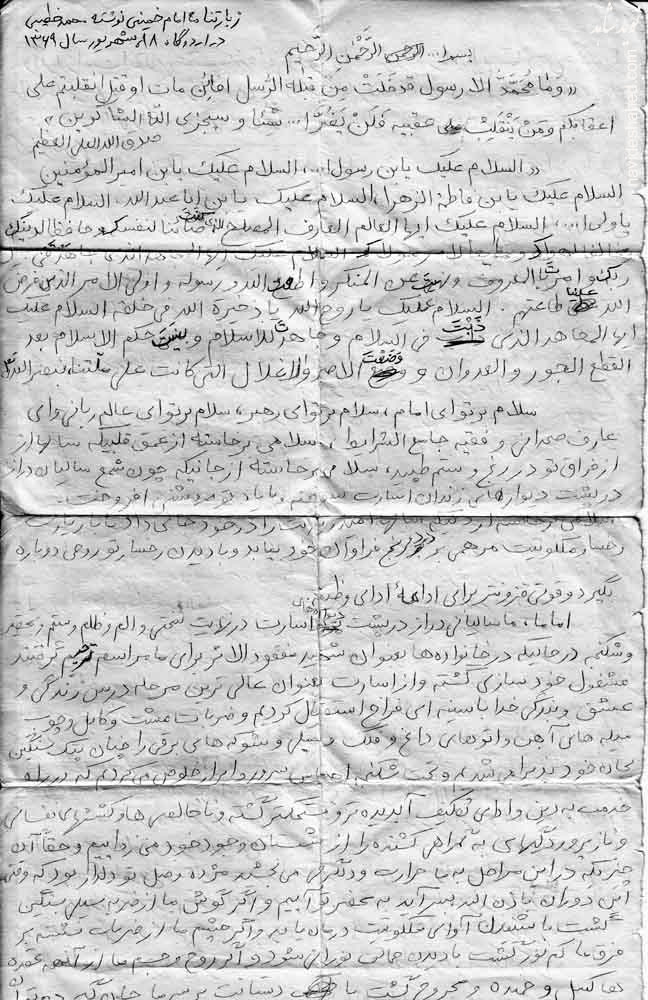 زیارتنامه امام خمینی نوشته محمد خطیبی
در اردوگاه ۱۸ شهریور سال ۱۳۶۹
بسم ا... الرحمن الرَّحْمنِ الرَّحیم
«وَمَا مُحَمَّدٌ الا رسول قد خَلَتْ من قبله الرُّسل افائن مات او قتل انقلبتم علی
اعقابکم وَمَنْ یَنْقَلِبْ علی عقبیه فَلَنْ یَضُرَّ ا... شیئا و سیجزی اللهُ الشاکرین»
صدق الله العلی العظیم
«السلام علیک یابن رسول ا...، السلام علیک یابن امیر المؤمنین
السلام علیک یابن فاطمة الزهرا، السلام علیک یابن اباعبدالله. السلام علیک
یا ولی ا...، السلام علیک ایها العالم العارف المصلح الذی کنت صائنا لنفسک و حافظا لدینک
السلام علیک
ربک و امرت بالمعروف و نهیت عن المنکر و اطعت الله و رسوله و اولی الامر الذین فرض
الله علینا طاعتهم. السلام علیک یا روح الله یا ذخیرة الله فی خلقه السلام علیک
ایها المجاهد الذی ذُبْتَ فی السلام و جاهدت للاسلام و بینت حکم الاسلام بعد
القطع الجور و العدوان و وضعت الاصر والاغلال التی کانت علی ملتنا
سلام بر تو ای امام، سلام بر تو ای رهبر، سلام بر تو ای عالم ربانی وای
عارف صمدانی و فقیه جامع الشرایط، سلامی برخاسته از عمق قلبیکه سالها از
از فراق تو در رنج و ستم طپید، سلامی برخاسته از جائیکه چون شمع سالیان دراز
در پشت دیوارهای زندان اسارت سوخته، با یاد تو افروخت.
رخسار ملکوتیت مرهمی بر درد و رنج فراوان خود بیابد و با دیدن رخسار تو روحی دوباره
بگیرد و قوتی فزونتر برای ادامهٔ ادای وظیفه
اماما، ما سالیانی دراز در پشت دیوارهای اسارت در نهایت سختی و الم و ظلم و ستم و تحقیر
و شکنجه در حالیکه در خانواده‌ها بعنوان شهید مفقود الاثر برای ما مراسم ترحیم گرفتند
مشغول خودسازی گشته و از اسارت بعنوان عالی ترین مرحله درس زندگی و
عشق و بندگی خدا با سینه ای فراخ استقبال کردیم و ضربات مشت و کابل و چوب
میله های آهن و اتوهای داغ و فلک و سیلی و شوکه های برقی را چنان پتک سنگین
بجان خود پذیرا می شدیم و تحت شکنجه احساس سرور و ابراز خلوص می کردیم که در راه
خدمت به دین و ادای تکلیف آبدیده تر و محکمتر گشته و ناخالصی ها و کششهای نفسانی
و ناز پروردگیهای به گمراهی کشنده را از وجود خود می زداییم و حقا آن
چیزیکه در این مراحل به ما حرارت و دلگرمی می بخشید مژده وصل تو دلدار بود که وقتی
این دوران باذن الله بسر آید به محضرت آییم و اگر گوش ما از ضربه سیلی سنگین
گشت با شنیدن آوای ملکوتیت درمان یابد و اگر چشم ما از ضربات نشسته بر
فرق ما کم نور گشت با دیدن جمالت نورانی شود و اگر روح و جسم ما از
و خمیده و مجروح گشت با دستانت بر سر ما